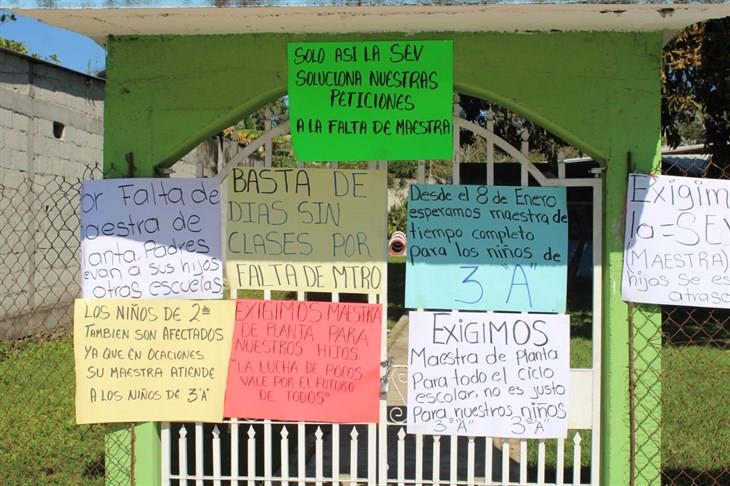 SOLO ASI LA SEV
SOLUCIONA NUESTRAS
PETICIONES
A LA FALTA DE MAESTRA
or Falta de
aestra de
lanta Padres
evan a sus hijos
otras escuelas
BASTA DE
DIAS SIN
CLASES POR
FALTA DE MTRO
Desde el 8 de Enero
esperamos maestra de
tiempo completo
para los niños de
3 "A"
Exigimos
la = SEV
(MAESTRA)
hijos se es
atrasa
LOS NIÑOS DE 2do
TAMBIEN SON AFECTADOS
YA QUE EN OCACIONES
SU MAESTRA ATIENDE
A LOS NIÑOS DE 3°A"
EXIGIMOS MAESTRA
DE PLANTA PARA
NUESTROS HIJOS.
"LA LUCHA DE POCOS
VALE POR EL FUTURO
DE TODOS"
EXIGIMOS
Maestra de planta
Para todo el ciclo
escolar, no es justo
Para nuestros niños
3°"A" 3°A"